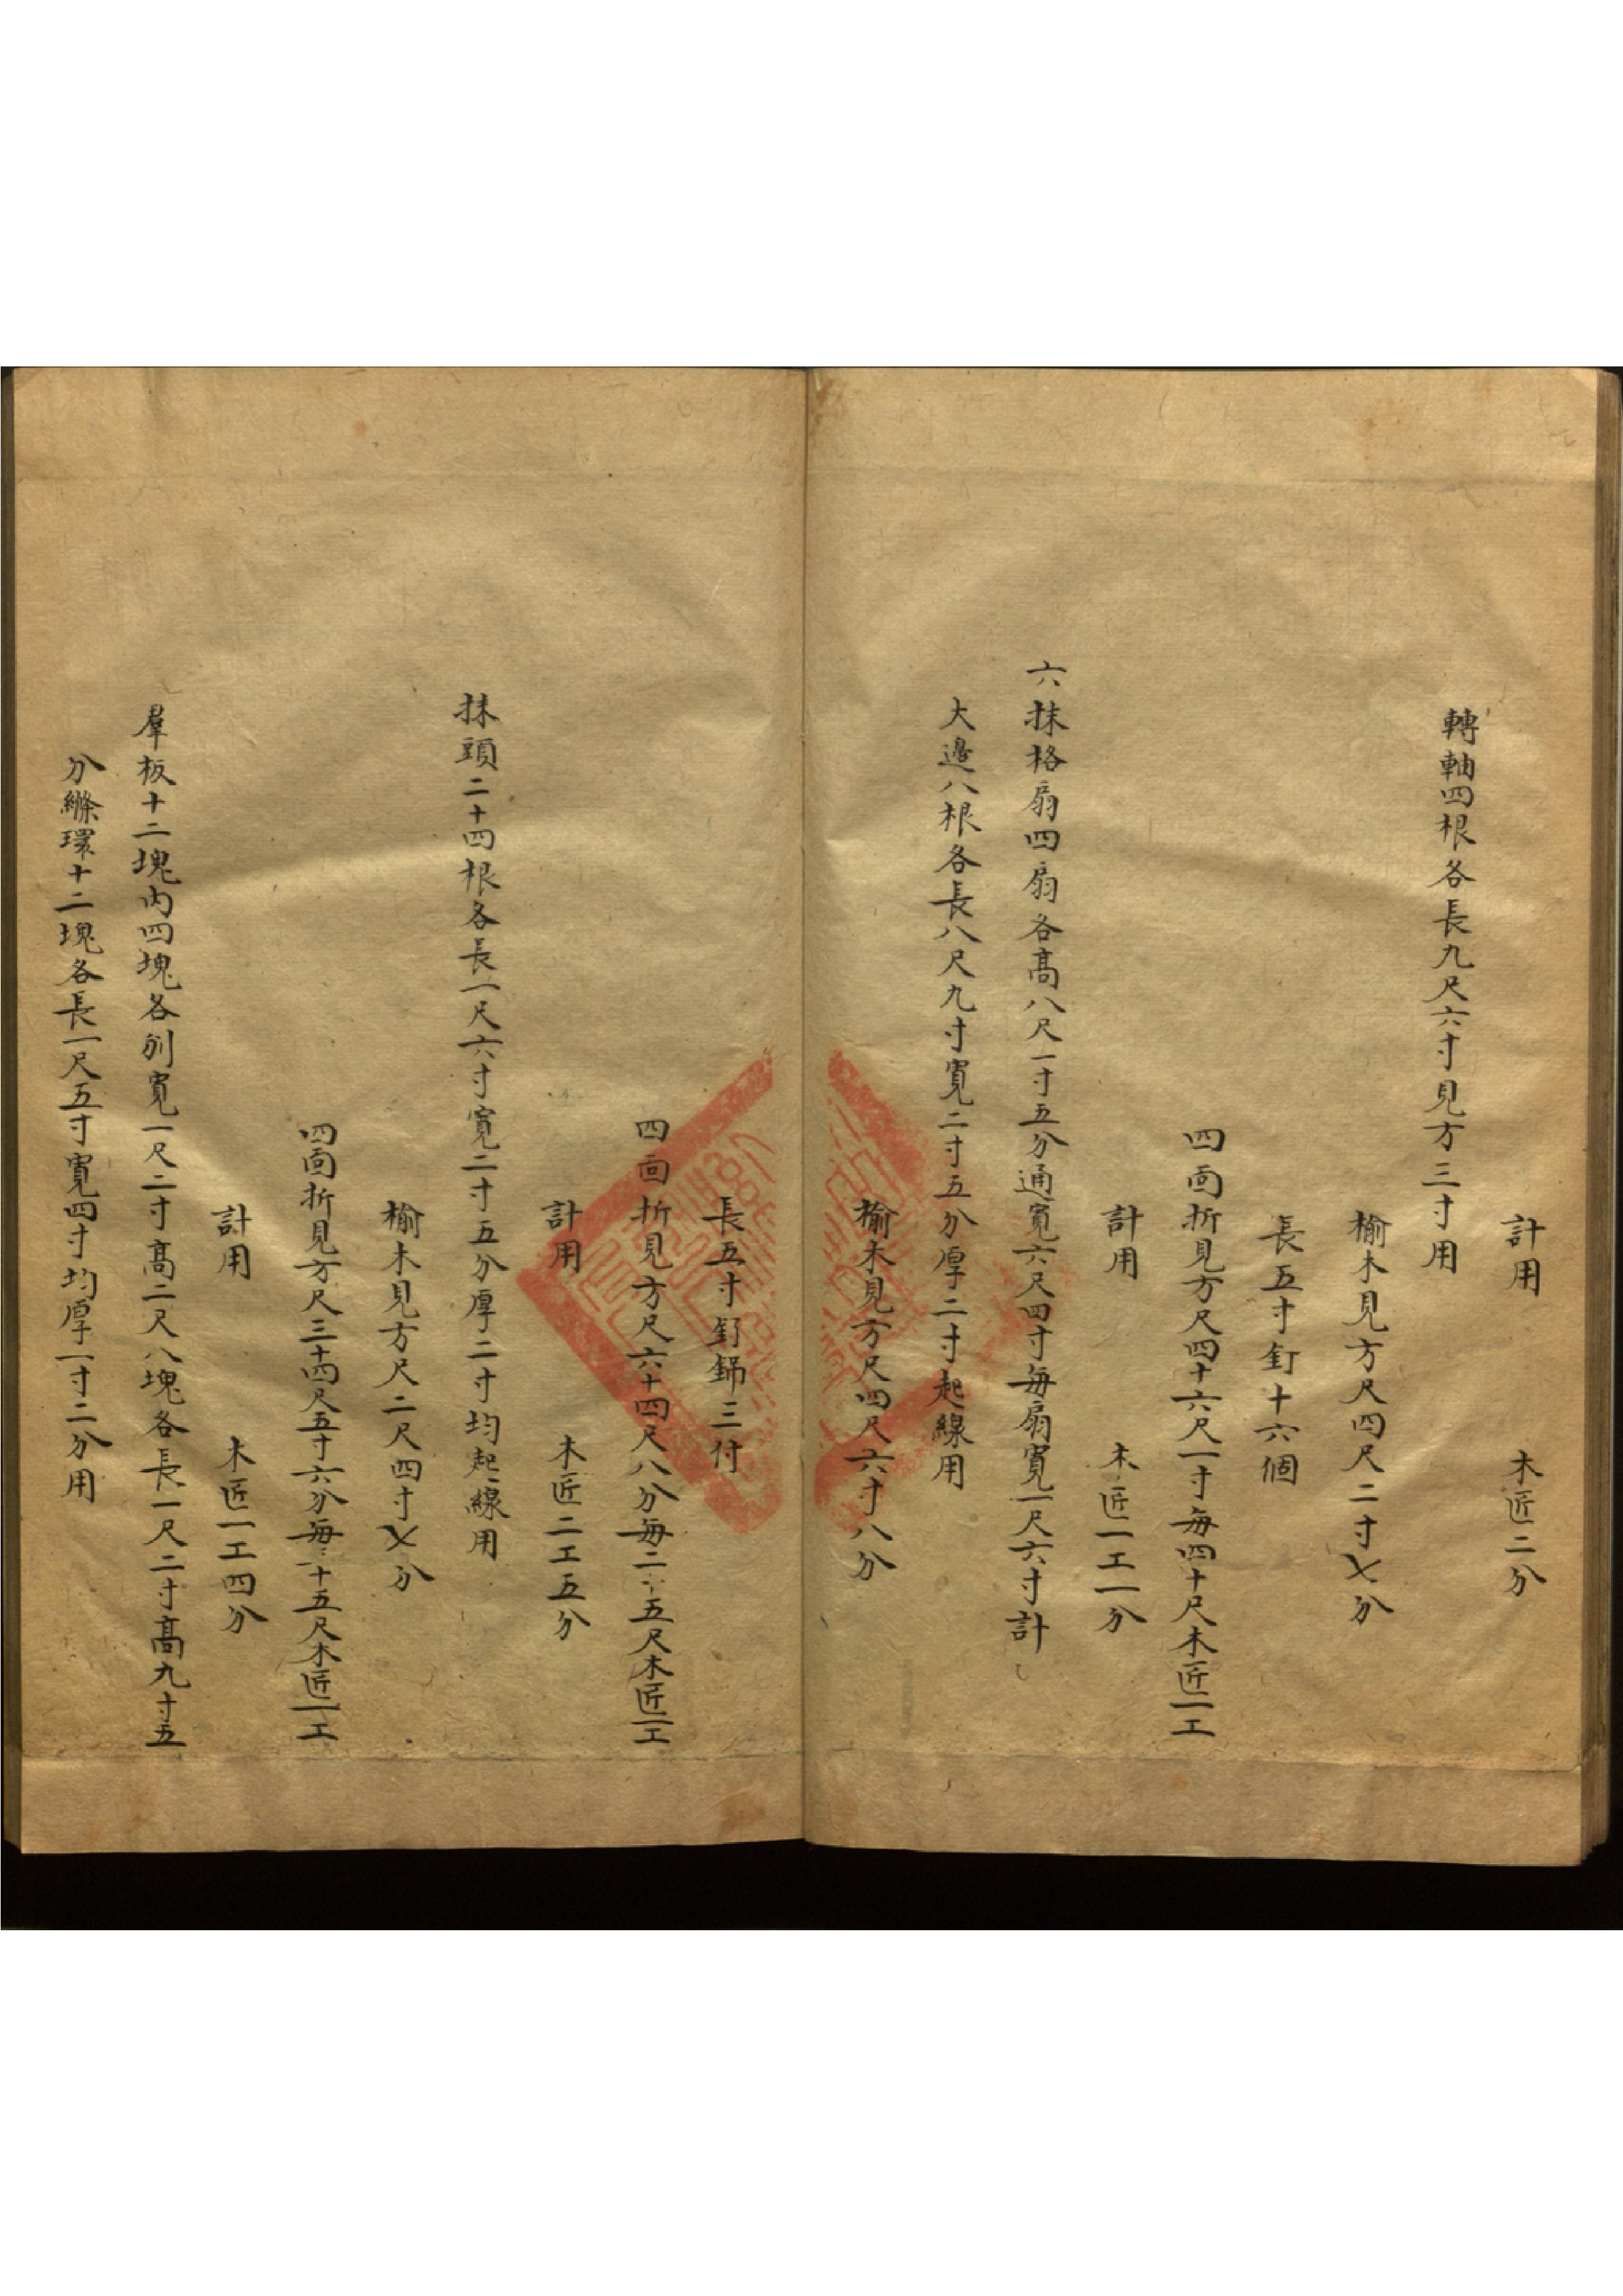 計用　木匠二分
轉軸四根各長九尺六寸見方三寸用
榆木見方尺四尺二寸七分
長五寸釘十六個
四面折見方尺四十六尺一寸每四十尺木匠一工
計用　木匠一工一分
六抹格扇四扇各高八尺一寸五分通寬六尺四寸每扇寬一尺六寸計
大邊八根各長八尺九寸寬二寸五分厚二寸起線用
榆木見方尺四尺六寸八分
長五寸釘錦三付
四面折見方尺六十四尺八分每二十五尺木匠一工
計用　木匠二工五分
抹頭二十四根各長一尺六寸寬二寸五分厚二寸均起線用
榆木見方尺二尺四寸七分
四面折見方尺三十四尺五寸六分每二十五尺木匠一工
計用　木匠一工四分
羣板十二塊內四塊各別寬一尺二寸高二尺八塊各長一尺二寸高九寸五
分縧環十二塊各長一尺五寸寬四寸均厚一寸二分用